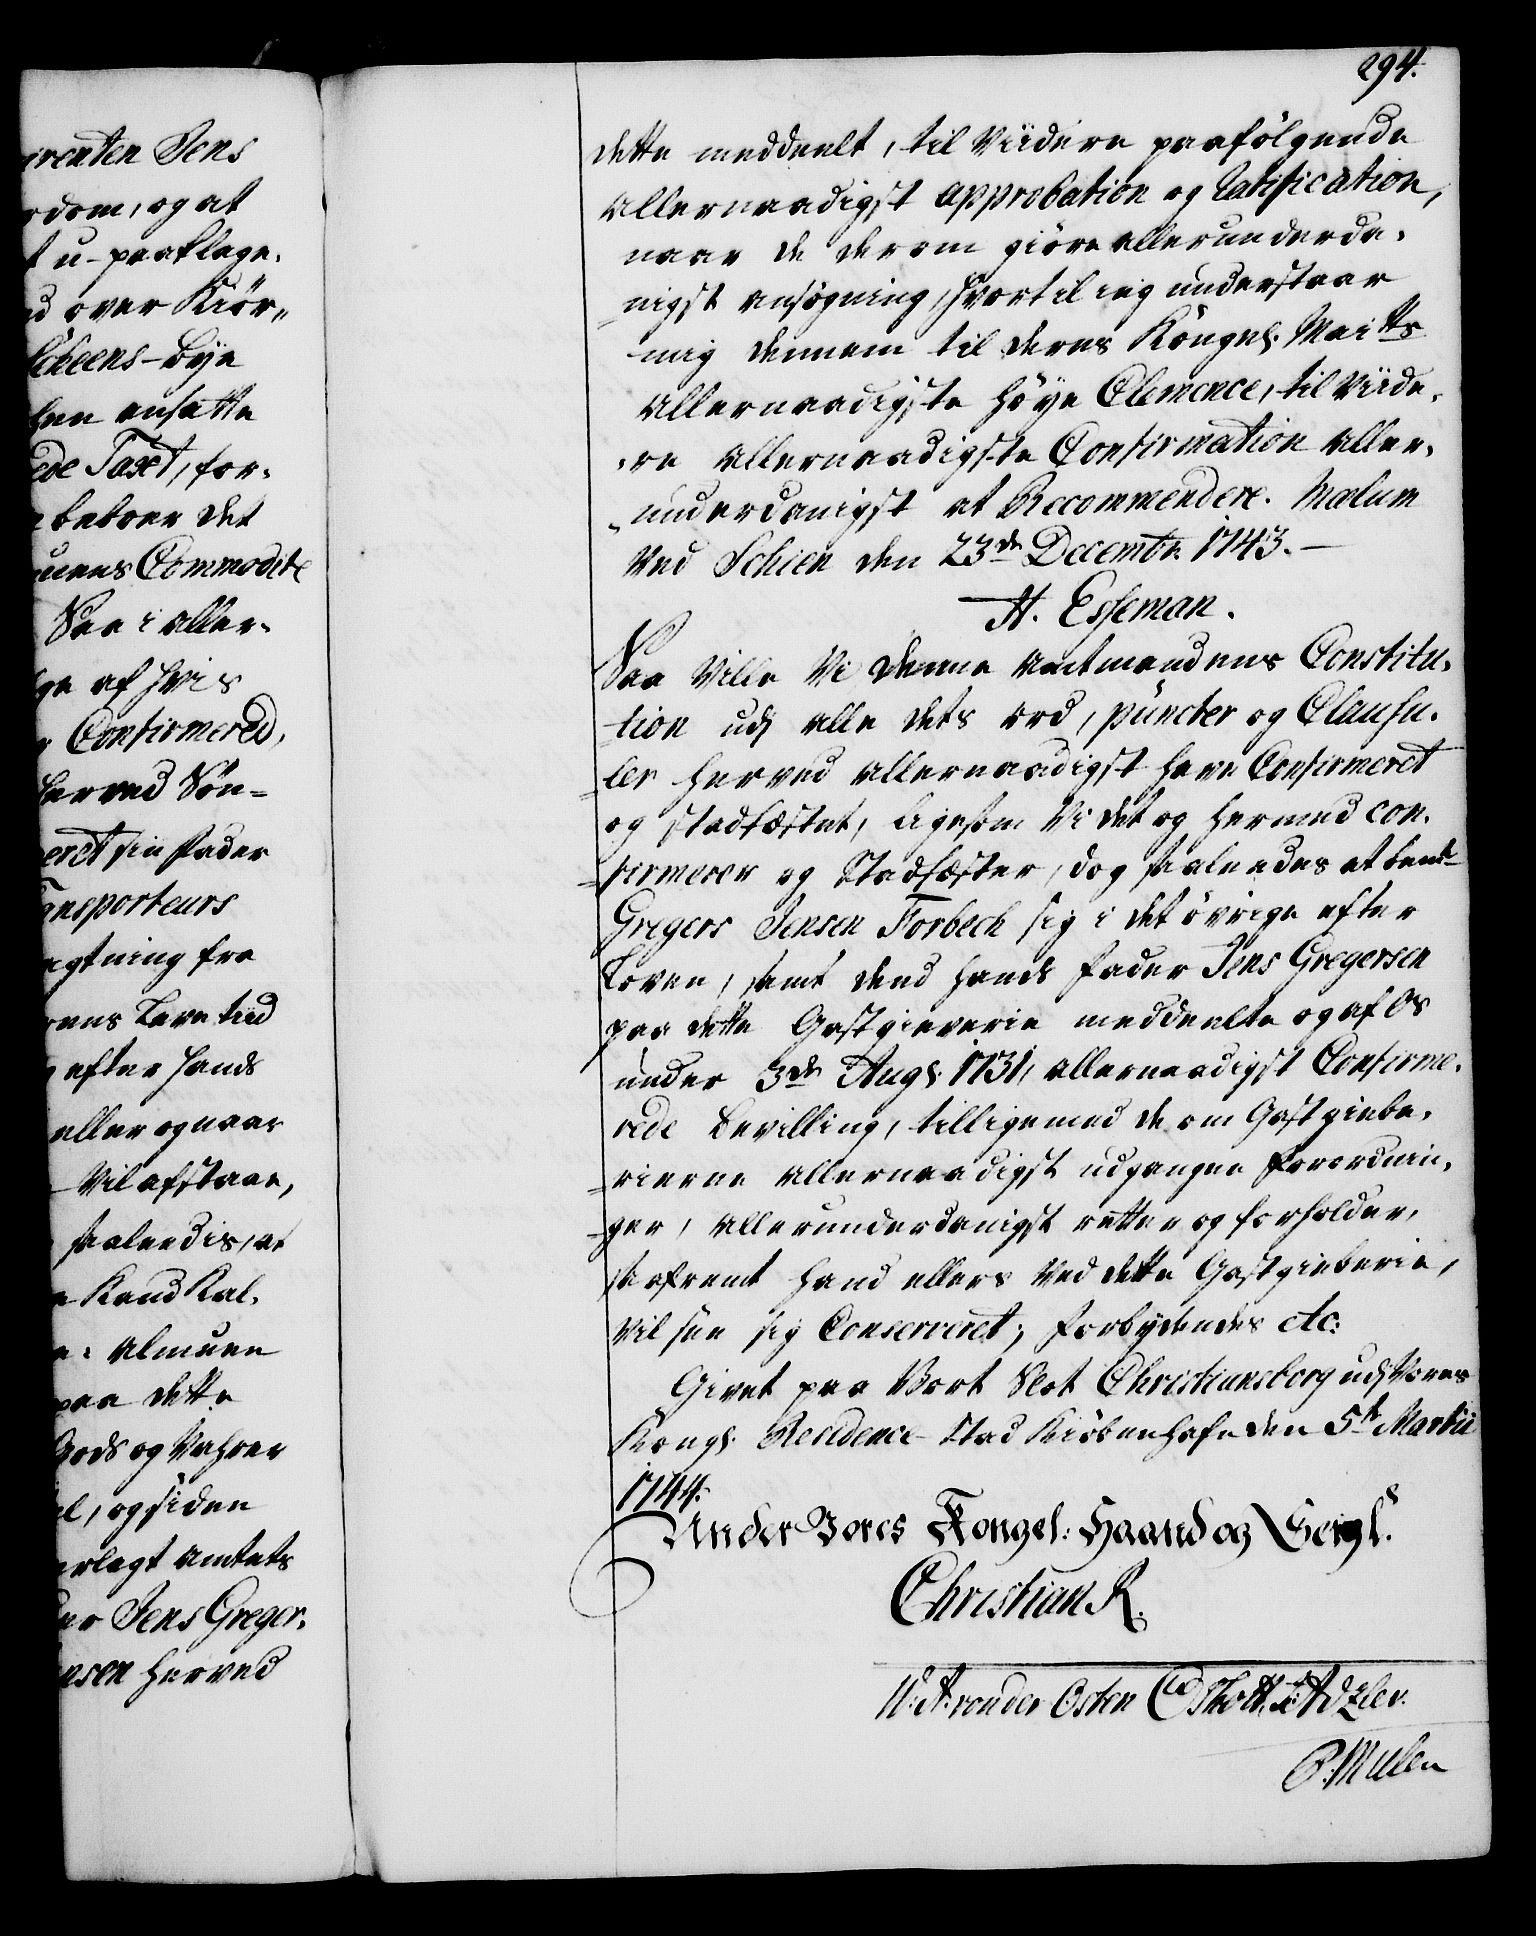 irenten Jens
dom, og at
t u-paaklage.
d over Kiör„
Scheens-Bye
hen ansatte
ede Taxt, for-
beboer det
uens Commodite
Saa i aller-
ge af hvis
Confirmered,
herved Sön-
eret sin fader
ansporteurs
agtning fra
rens Leve tiid
efter hands
eller og naar
Vil afstaae,
saaledis, at
Kand Kal.
Almuen
paa dette
Gods og Vahrer
el, og siden
erlagt Amtets
Jens Greger-
nsen herved
294.
dette meddeelt, til Viidere paafölgende
allernaadigst approbation og Ratification,
naar de derom giöre allerunderda-
nigst ansögning, hvortil ieg understaar
mig dennem til deres Köngel. Maitts
allernaadigste höye Clemence, til Viide-
re allernaadigste Confirmation aller-
underdanigst at Recommendere. Mælum
Ved Schien den 23de Decembr. 1743.-
H. Esseman.
Saa Ville Vi denne Amtmandens Constitu-
tion udj alle dets ord, püncter og Clausu-
ler herved allernaadigst have Confirmeret
og stadfæstet, ligesom Vi det og hermed con-
firmerer og Stadfæster, dog saaledes at bemte
Gregers Jensen Forbech sig i det övrige efter
Loven, samt dend hands fader Jens Gregersen
paa dette Gestgieverie meddeelte og af Os
under 3de Aug. 1731, allernaadigst Confirme-
rede bevilling, tilligemed de om Gestgiebe-
rierne allernaadigst udgangne forordnin-
ger, allerunderdanigst retter og forholder,
saafremt hand ellers Ved dette Gestgieberie,
vil see sig Conserveret; forbydendes etc:
Givet paa Vort Slot Christiansborg udj Vores
Kongl. Residence Stad Kiöbenhafn den 5te Martii
1744.
Under Vores Kongel: Haand og Seigl.
Christian R.
W. A. von der Osten Holst
P. Mülen